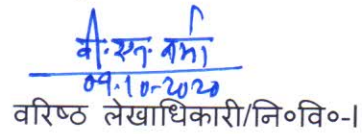 वी. एन. वर्मा
09.10.2020
वरिष्ठ लेखाधिकारी/नि०वि०-I